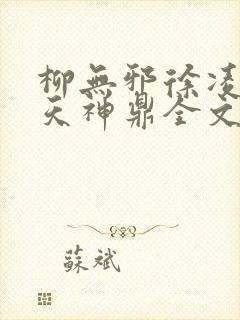 柳無邪徐凌
天神鼎全文
蘇斌